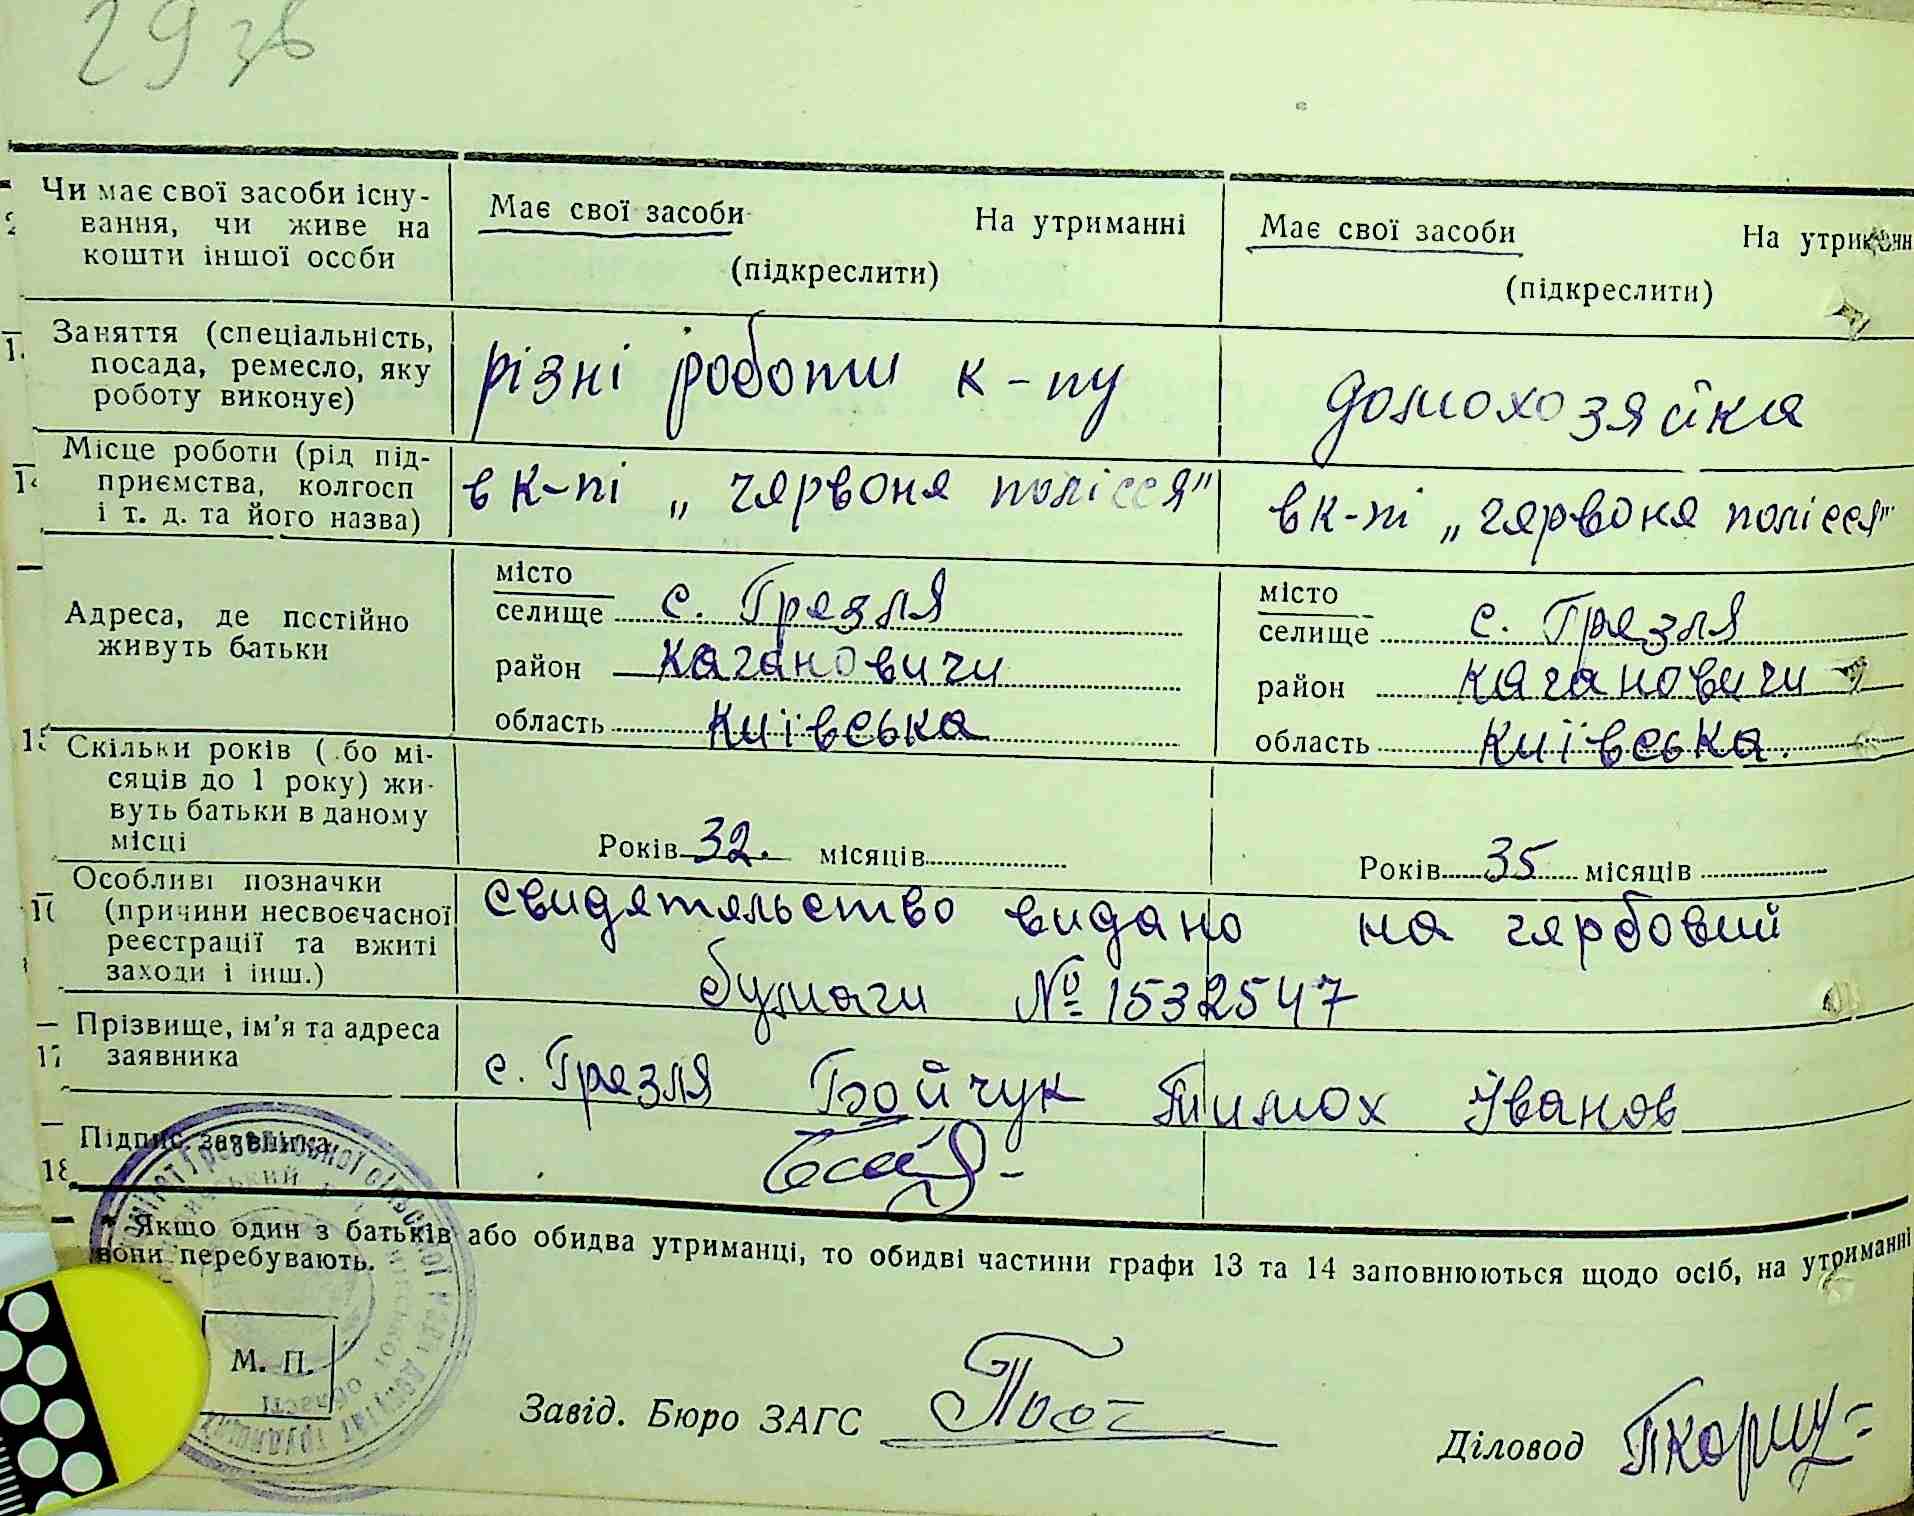 29 зв
Чи має свої засоби існу-
вання, чи живе на
кошти іншої особи
Має свої засоби На утриманні
(підкреслити)
Має свої засоби На утриманн
(підкреслити)
Заняття (спеціальність,
посада, ремесло, яку
роботу виконує)
різні роботи к-пу
домохозяйка
14
Місце роботи (рід під-
приємства, колгосп
і т. д. та його назва)
в к-пі „червоне полісся"
в к-пі „червоне полісся"
Адреса, де постійно
живуть батьки
місто
селище с. Грезля
район Кагановичи
область Київська
місто
селище с. Грезля
район Кагановичи
область Київська.
15
Скільки років ( бо мі-
сяців до 1 року) жи-
вуть батьки в даному
місці
Років 32. місяців
Років 35 місяців
Особливі позначки
(причини несвоєчасної
реєстрації та вжиті
заходи і інш.)
свидетельство видано на гербовий
бумаги № 1532547
17
Прізвище, ім'я та адреса
заявника
с. Грезля Бойчук Тимох Іванов
18
Підпис заявника
* Якщо один з батьків або обидва утриманці, то обидві частини графи 13 та 14 заповнюються щодо осіб, на утриманні
вони перебувають.
М. П.
Завід. Бюро ЗАГС
Діловод